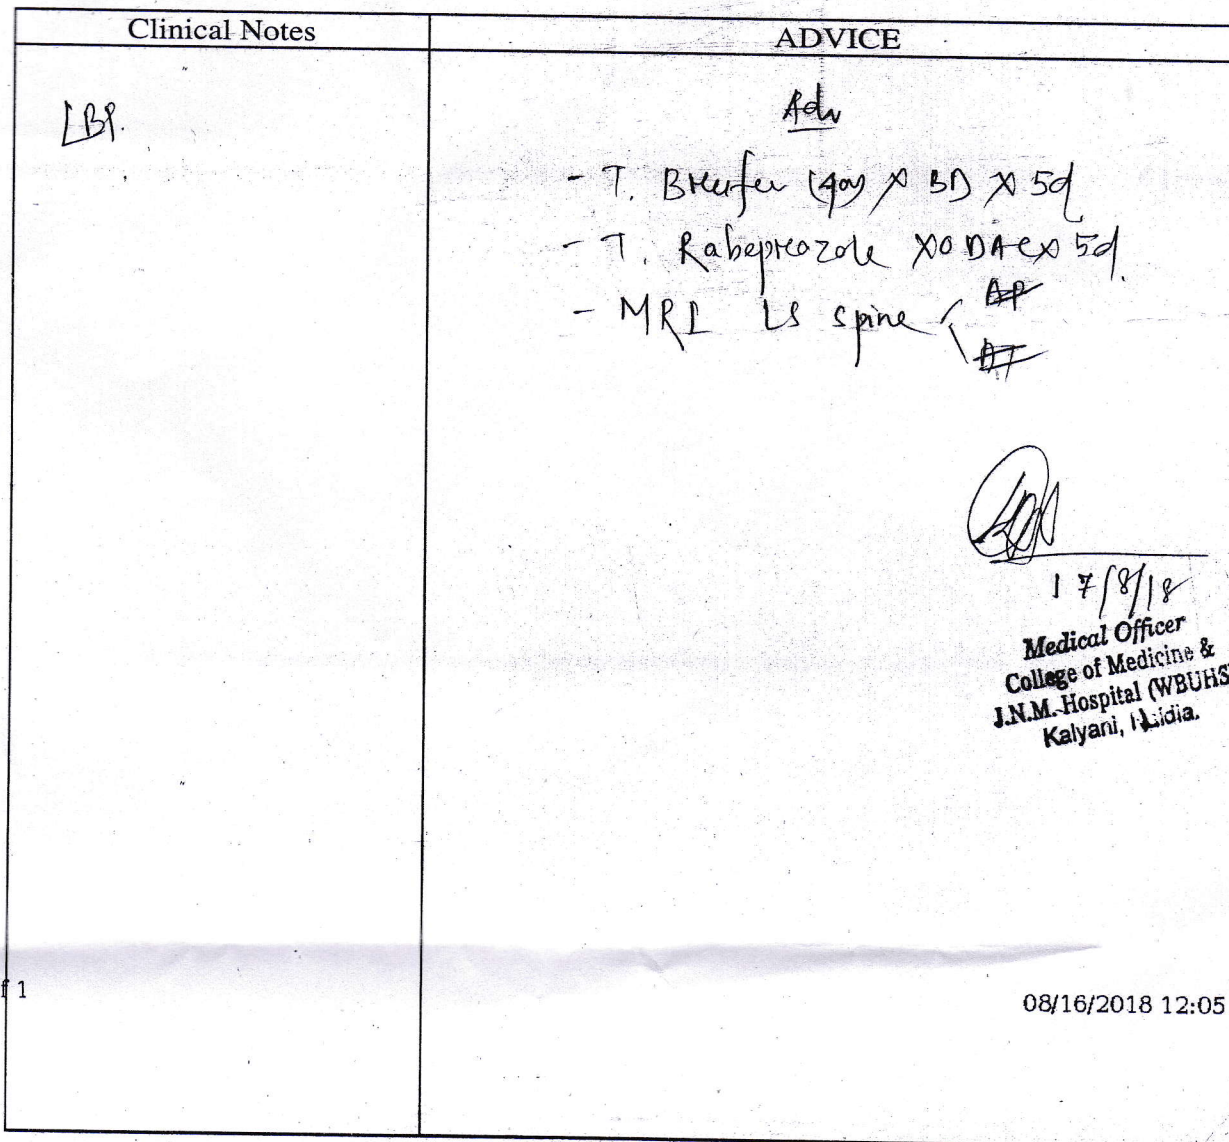 Clinical Notes
ADVICE
LBP.
Adv
- T. Brufen (400) X BD X 5d
- T. Rabeprazole X OD AC X 5d.
- MRI LS spine
AP
17/8/18
Medical Officer
College of Medicine &
J.N.M. Hospital (WBUHS
Kalyani,
f 1
08/16/2018 12:05